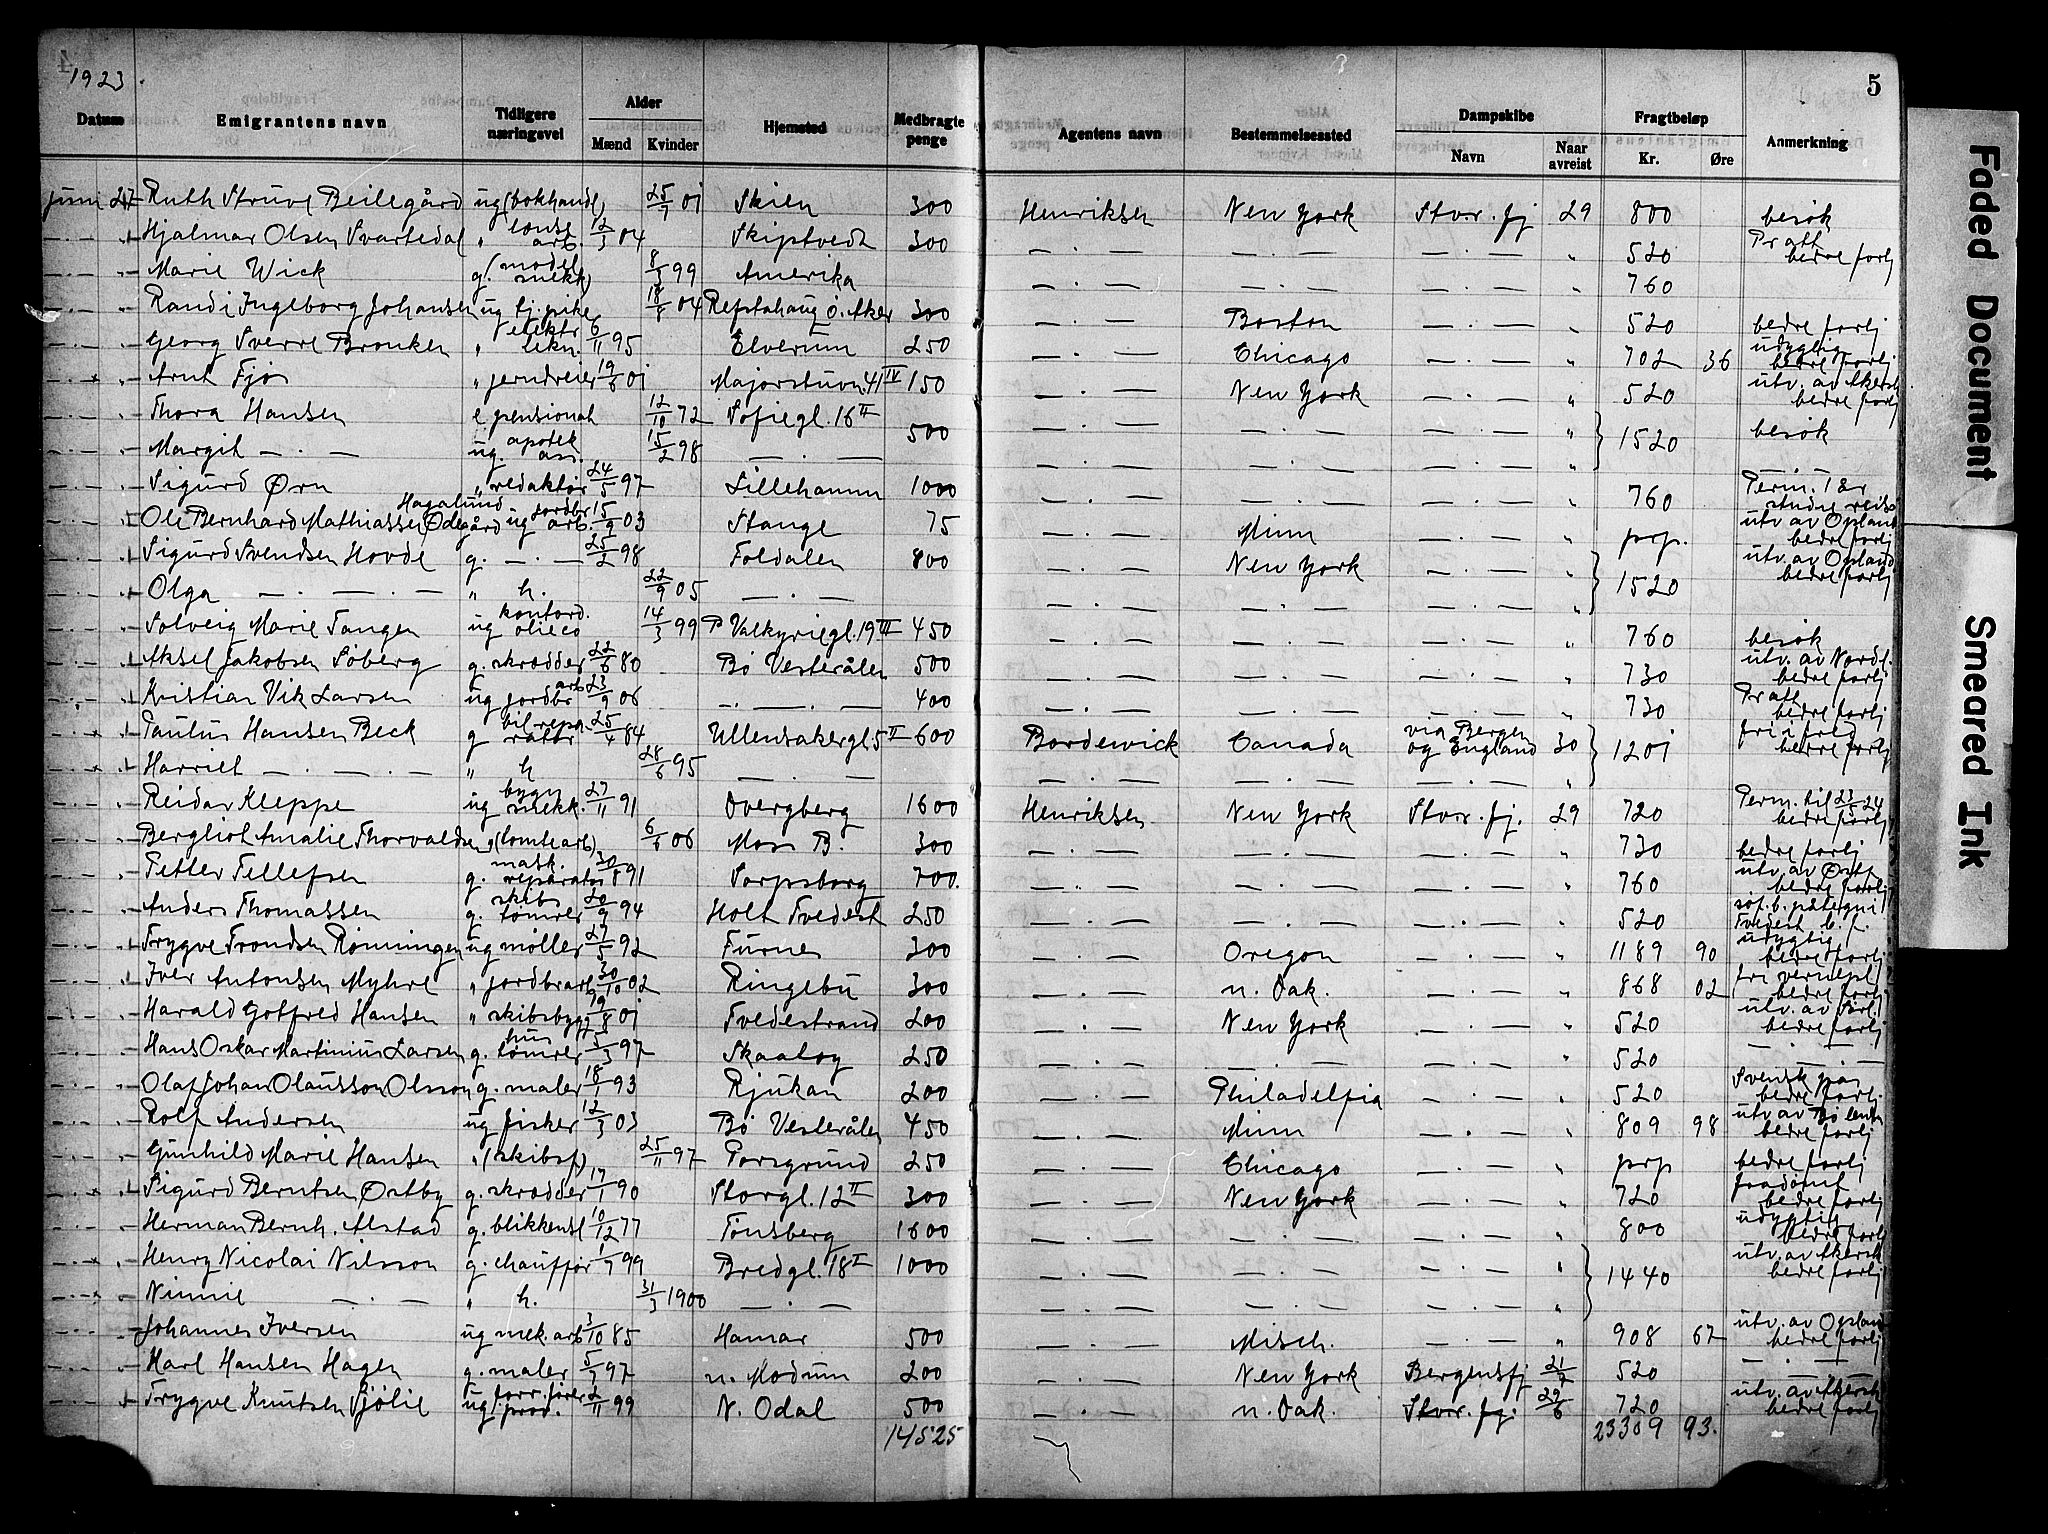 1923
5
Datum Emigrantens navn Tidligere næringsvei Alder Mænd Kvinder Hjemsted Medbragte penge Agentens navn Bestemmelsessted Dampskibe Navn Naar avreist Fragtbeløp Kr. Øre Anmerkning
Juni 27 Ruth Struve Beilegård ug (bokhandl) 25/7 01 Skien 300 Henriksen New York Stvr. fj 29 800 besøk
" Hjalmar Olsen Svartedal " arb. 12/3 04 Skiptvedt 300 — . — — . — — . — " 520 Pratt bedre forhj
" Marie Wick g. (model mekk) 8/3 99 Amerika — . — — . — — . — " 760
" Randi Ingeborg Johansen ug tj. pike 18/8 04 Refstahaug Ø. Aker 300 — . — Boston — . — " 520 bedre forhj
" Georg Sverre Bronken " elektr tekn. 6/11 95 Elverum 250 — . — Chicago — . — " 702 36 udygtig bedre forhj
" Arnt Fjøs " jerndreier 19/6 01 Majorstuvn 41 IV 150 — . — New York — . — " 520 utv. av Akersh bedre forhj
" Thora Hansen e pensionat 12/10 72 Sofiegt. 16 II 500 — . — — . — — . — " } 1520 besøk
" Margit — . — ug. apotek ass. 15/2 98 — . — — . — — . — — . — " — . —
" Sigurd Ørn " redaktør 24/5 97 Lillehamm 1000 — . — — . — — . — " 760 Perm. 1 år studiereise
" Ole Bernhard Mathiassen Hagalund Ødegård ug jordbr arb. 15/9 03 Stange 75 — . — Minn — . — " prp. utv av Opland bedre forhj
" Sigurd Svendsen Hovde g. — . — 25/2 98 Foldalen 800 — . — New York — . — " } 1520 utv. av Opland bedre forhj
" Olga — . — . — " h. 22/9 05 — . — — . — — . — — . — "
" Solveig Marie Tangen ug kontord. olieco 14/3 99 P Valkyriegt. 19 III 450 — . — — . — — . — " 760 besøk
" Aksel Jakobsen Søberg g. skrædder 22/6 80 Bø Vesterålen 500 — . — — . — — . — " 730 utv. av Nordl. bedre forhj
" Kristian Vik Larsen ug jordbr arb 23/9 06 — . — 400 — . — — . — — . — " 730 Pratt bedre forhj
" Paulus Hansen Beck g bil repa ratør 25/4 84 Ullensakergt 5 II 600 Bordewick Canada via Bergen og England 30 } 1201 fri i fred bedre forhj
" Harriet — . — . — " h 28/6 95 — . — — . — — . — — . — "
" Reidar Kleppe ug bygn mekk. 27/11 91 Dvergberg 1600 Henriksen New York Stvr. fj. 29 720 Perm. til 23/5 24 bedre forhj
" Bergliot Amalie Thorvaldsen " (tomtearb) 6/6 06 Moss B. 300 — . — — . — — . — " 730 bedre forhj
" Petter Tellefsen g. mask. reparatør 30/8 91 Sarpsborg 700. — . — — . — — . — " 760 utv. av Østf bedre forhj
" Anders Thomassen g. skibs tømrer 20/9 94 Holt Tvedest 250 — . — — . — — . — " 520 søf. b. påtegni Tvedest
" Trygve Trondsen Rønningen ug møller 27/5 92 Furnes 300 — . — Oregon — . — " 1189 90 udygtig bedre forhj
" Iver Antonsen Myhre " jordbrarb 30/10 02 Ringebu 300 — . — n. Dak. — . — " 868 02 fri vernepl bedre forhj
" Harald Gotfred Hansen " skibsbygg 19/8 01 Tvedestrand 200 — . — New York — . — " 520 utv. av Sørl. bedre forhj
" Hans Oskar Martinius Larsen g. hus tømrer 5/3 97 Skaaløy 250 — . — — . — — . — " 520 — . —
" Olaf Johan Olausson Olsson g. maler 18/1 93 Rjukan 200 — . — Philadelfia — . — " 520 Svensk pas bedre forhj.
" Rolf Andersen ug fisker 12/3 03 Bø Vesterålen 450 — . — Minn — . — " 809 98 utv av Bø bedre forhj
" Gunhild Marie Hansen " (skibsf) 25/11 97 Porsgrund 250 — . — Chicago — . — " prp bedre forhj
" Sigurd Berntsen Østby g. skrædder 17/1 90 Storgt. 12 II 300 — . — New York — . — " 720 bedre forhj
" Herman Bernh. Alstad g. blikkensl 10/12 77 Tønsberg 1600 — . — — . — — . — " 800 udygtig bedre forhj
" Henry Nicolai Nilsson g. chauffør 1/7 99 Bredgt. 18 I 1000 — . — — . — — . — " } 1440 utv. av Akersh bedre forhj
" Ninnie — . — " h. 31/3 1900 — . — — . — — . — — . — "
" Johannes Iversen ug mek. arb 3/10 85 Hamar 500 — . — Misch. — . — " 908 67 utv. av Opland bedre forhj
" Karl Hansen Hagen g. maler 5/7 97 n. Modum 200 — . — New York Bergensfj 21/7 520 — . —
" Trygve Knutsen Sjølie ug forr. fører prod. 2/11 99 N. Odal 500 — . — n. Dak. Stvr. fj. 29/6 720 utv. av Akersh bedre forhj
14525 23309 93.
Faded Document
Smeared Ink